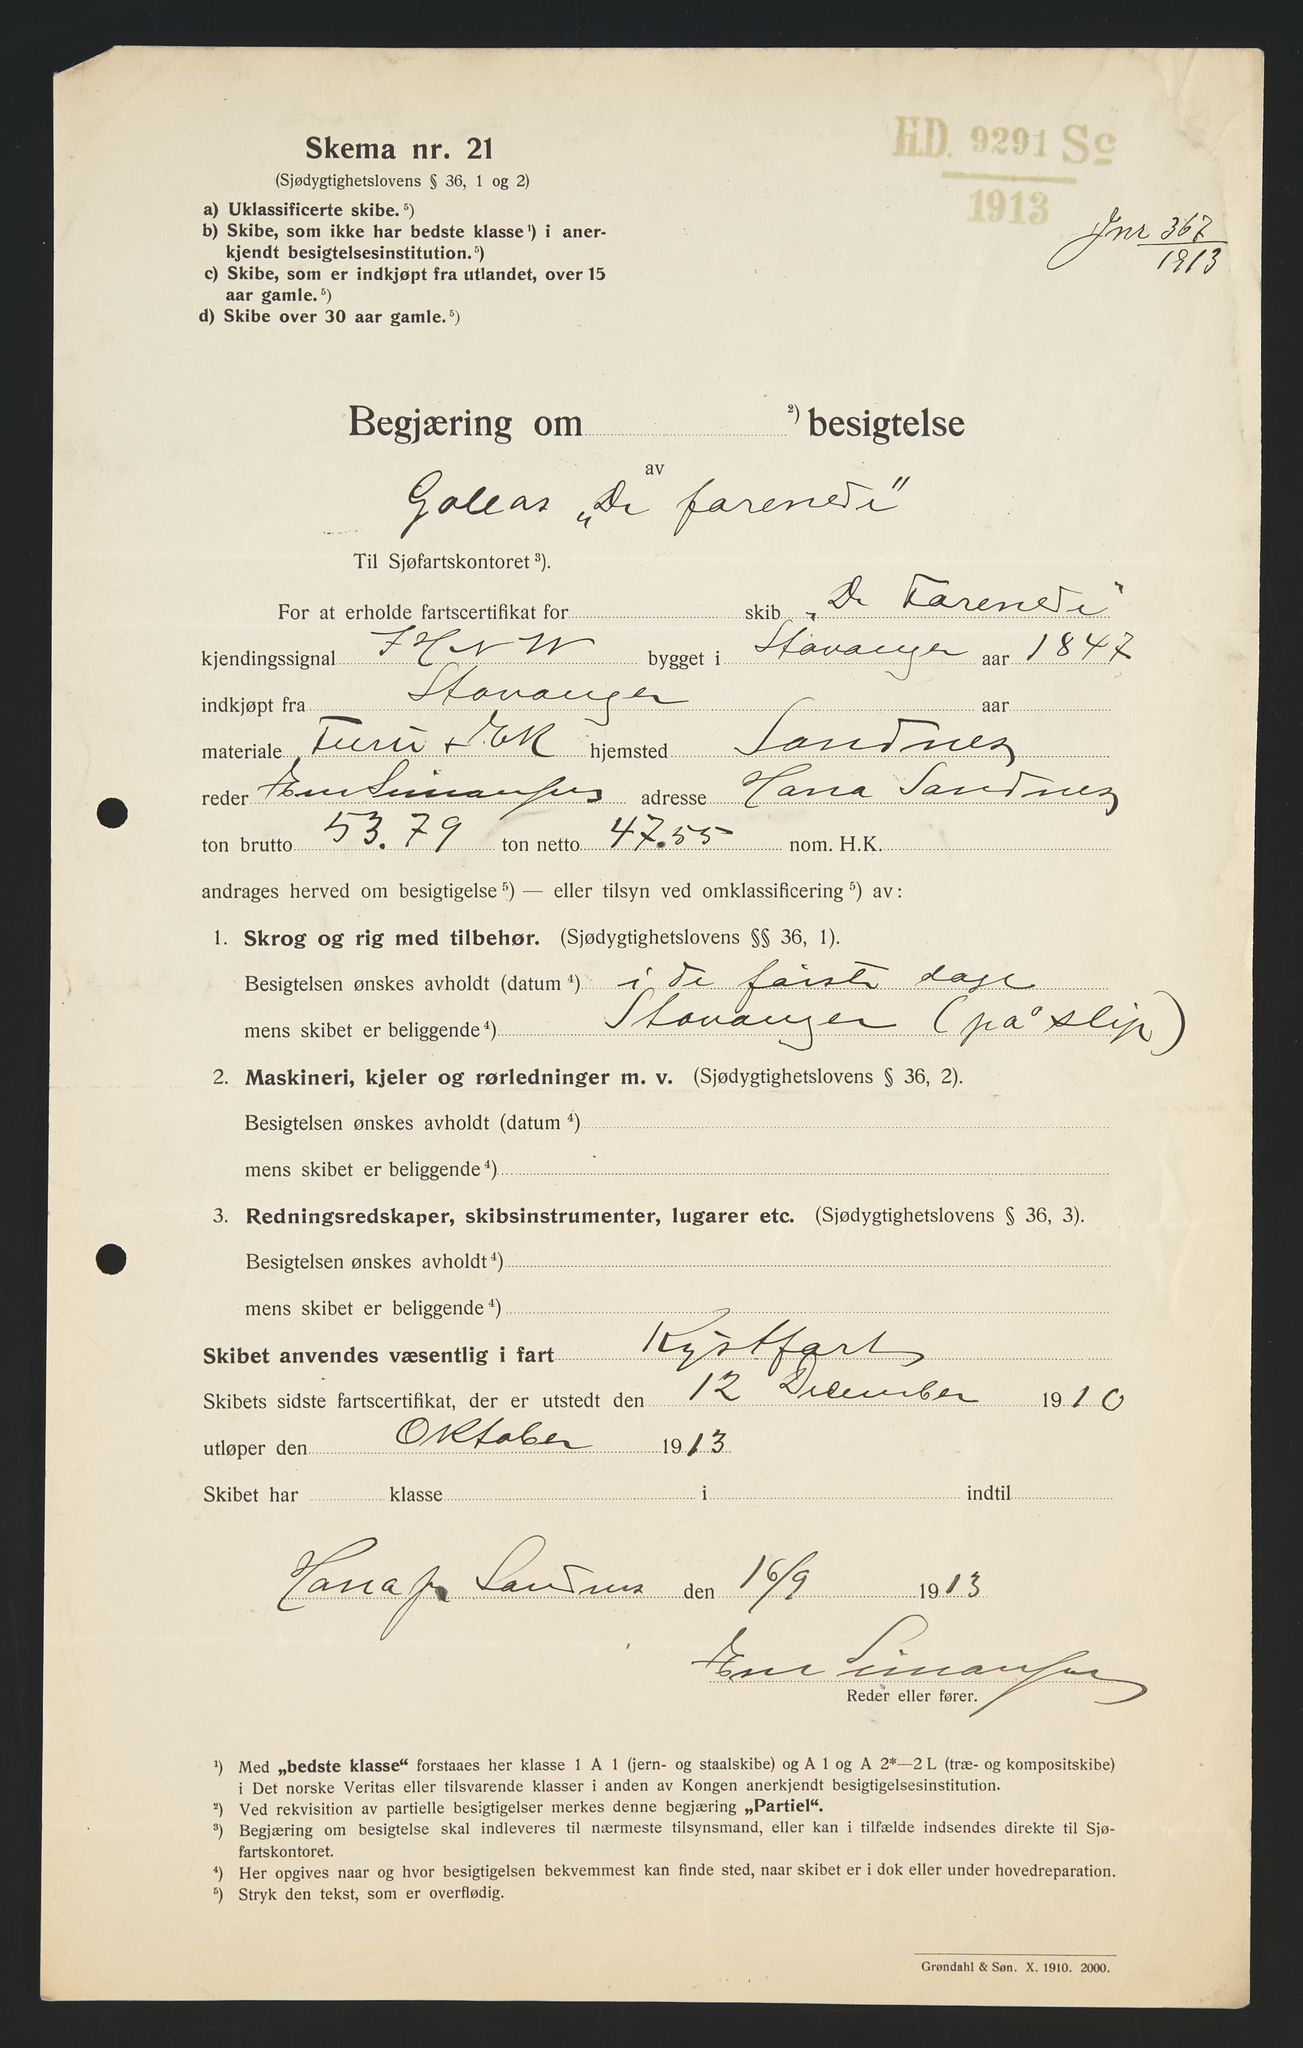 Skema nr. 21
(Sjødygtighetslovens § 36, 1 og 2)
a) Uklassificerte skibe.⁵)
b) Skibe, som ikke har bedste klasse¹) i aner-
kjendt besigtelsesinstitution.⁵)
c) Skibe, som er indkjøpt fra utlandet, over 15
aar gamle.⁵)
d) Skibe over 30 aar gamle.⁵)
H.D. 9291 Sc
1913
Jnr 367
1913
Begjæring om ²) besigtelse
av
Galeas „De farende"
Til Sjøfartskontoret³).
For at erholde fartscertifikat for skib „De Farende"
kjendingssignal bygget i Stavanger aar 1847
indkjøpt fra Stavanger aar
materiale Furu + Ek hjemsted Sandnes
reder Simonsen adresse Hana Sandnes
ton brutto 53.79 ton netto 47.55 nom. H.K.
andrages herved om besigtigelse⁵) — eller tilsyn ved omklassificering⁵) av:
1. Skrog og rig med tilbehør. (Sjødygtighetslovens §§ 36, 1).
Besigtelsen ønskes avholdt (datum⁴) i de første dage
mens skibet er beliggende⁴) Stavanger (på slip)
2. Maskineri, kjeler og rørledninger m. v. (Sjødygtighetslovens § 36, 2).
Besigtelsen ønskes avholdt (datum⁴)
mens skibet er beliggende⁴)
3. Redningsredskaper, skibsinstrumenter, lugarer etc. (Sjødygtighetslovens § 36, 3).
Besigtelsen ønskes avholdt⁴)
mens skibet er beliggende⁴)
Skibet anvendes væsentlig i fart Kystfart
Skibets sidste fartscertifikat, der er utstedt den 12 December 1910
utløper den Oktober 1913
Skibet har klasse i indtil
Hana pr Sandnes den 16/9 1913
Simonsen
Reder eller fører.
¹) Med „bedste klasse" forstaaes her klasse 1 A 1 (jern- og staalskibe) og A 1 og A 2*—2 L (træ- og kompositskibe)
i Det norske Veritas eller tilsvarende klasser i anden av Kongen anerkjendt besigtigelsesinstitution.
²) Ved rekvisition av partielle besigtigelser merkes denne begjæring „Partiel".
³) Begjæring om besigtelse skal indleveres til nærmeste tilsynsmand, eller kan i tilfælde indsendes direkte til Sjø-
fartskontoret.
⁴) Her opgives naar og hvor besigtigelsen bekvemmest kan finde sted, naar skibet er i dok eller under hovedreparation.
⁵) Stryk den tekst, som er overflødig.
Grøndahl & Søn. X. 1910. 2000.